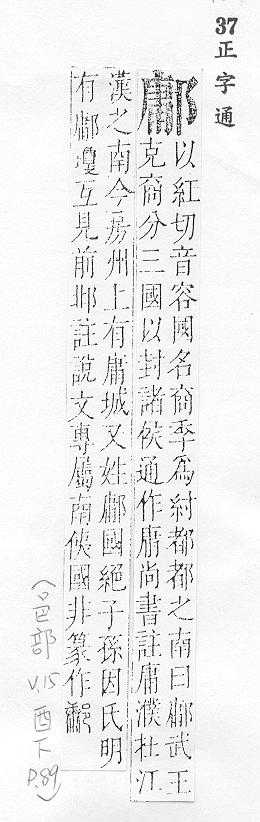 37
正字通
鄘
以紅切音容國名商季為紂都都之南曰鄘武王
克商分三國以封諸侯通作庸尚書註庸濮在江
漢之南今房州上有庸城又姓鄘國絕子孫因氏明
有鄘瓊互見前邶註說文專屬南侇國非篆作
(邑部
V.15
酉下
P.89)